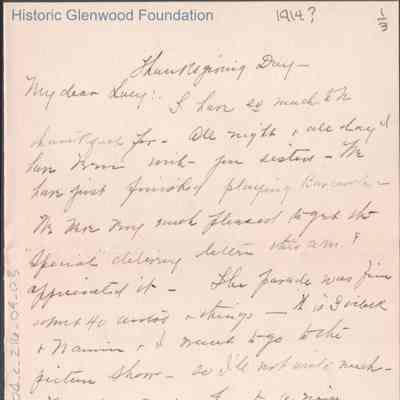 Historic Glenwood Foundation
1914?
1/3
Thanksgiving Day—
My dear Lucy:. I have so much to be
thankful for – All night & all day I
have been with your sisters – We
have just finished playing
We were very much pleased to get the
"Special" delivery letter this a.m. &
appreciated it – The parade was fine
about 40 autos & things — It is 3 o'clock
& & I want to go to the
picture show – so I'll not write much –